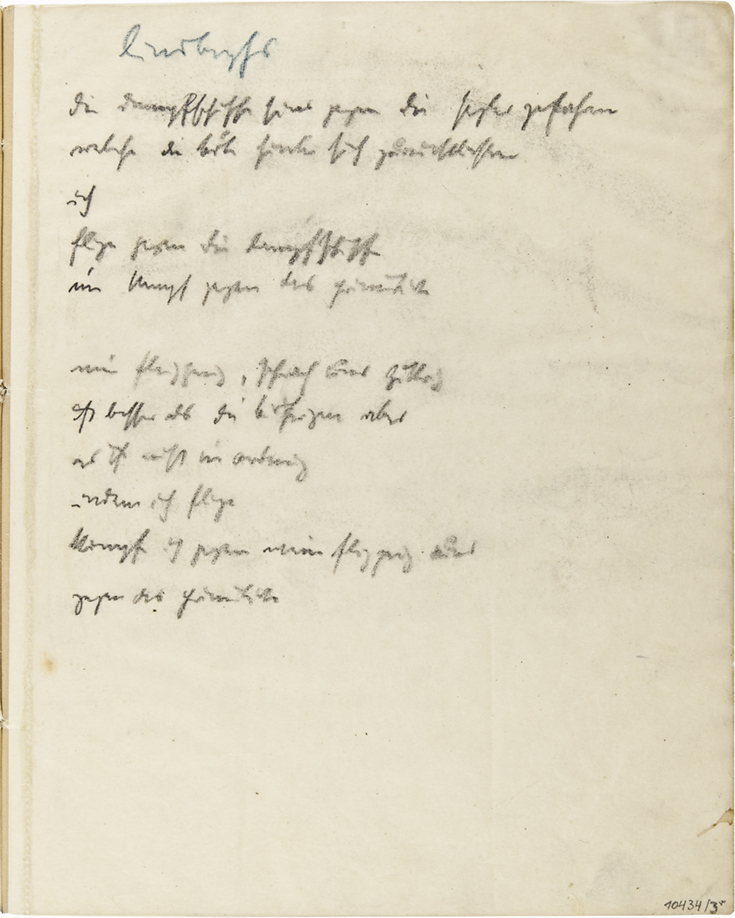 lindberghs
die dampfschiffe sind gegen die segler gefahren
welche die böte hinter sich zurückließen
ich
fliege gegen die dampfschiffe
im kampf gegen das primitive
mein flugzeug, schwach und zittrig
ist besser als die bisherigen aber
es ist nicht in ordnung
indem ich fliege
kämpf ich gegen mein flugzeug und
gegen das primitive
10434/3r